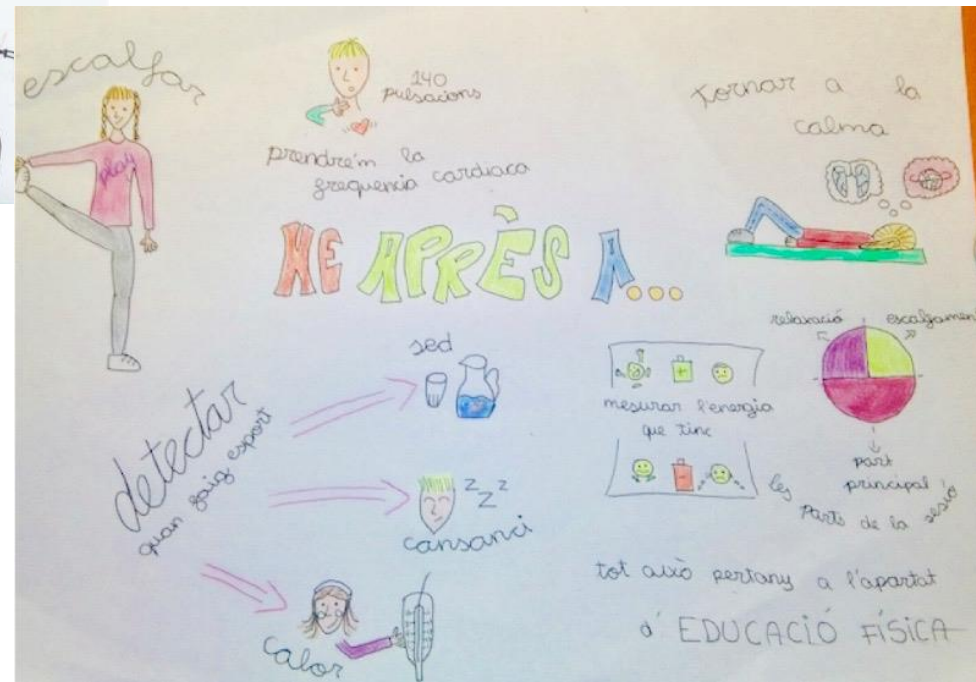 escalfar
play
140
pulsacions
prendre'm la
frequencia cardiaca
tornar a la
calma
HE APRÈS A...
detectar
quan faig esport
sed
z z z
cansanci
calor
mesurar l'energia
que tinc
relaxació
escalfament
part
principal
les parts de la sesió
tot això pertany a l'apartat
d' EDUCACIÓ FÍSICA